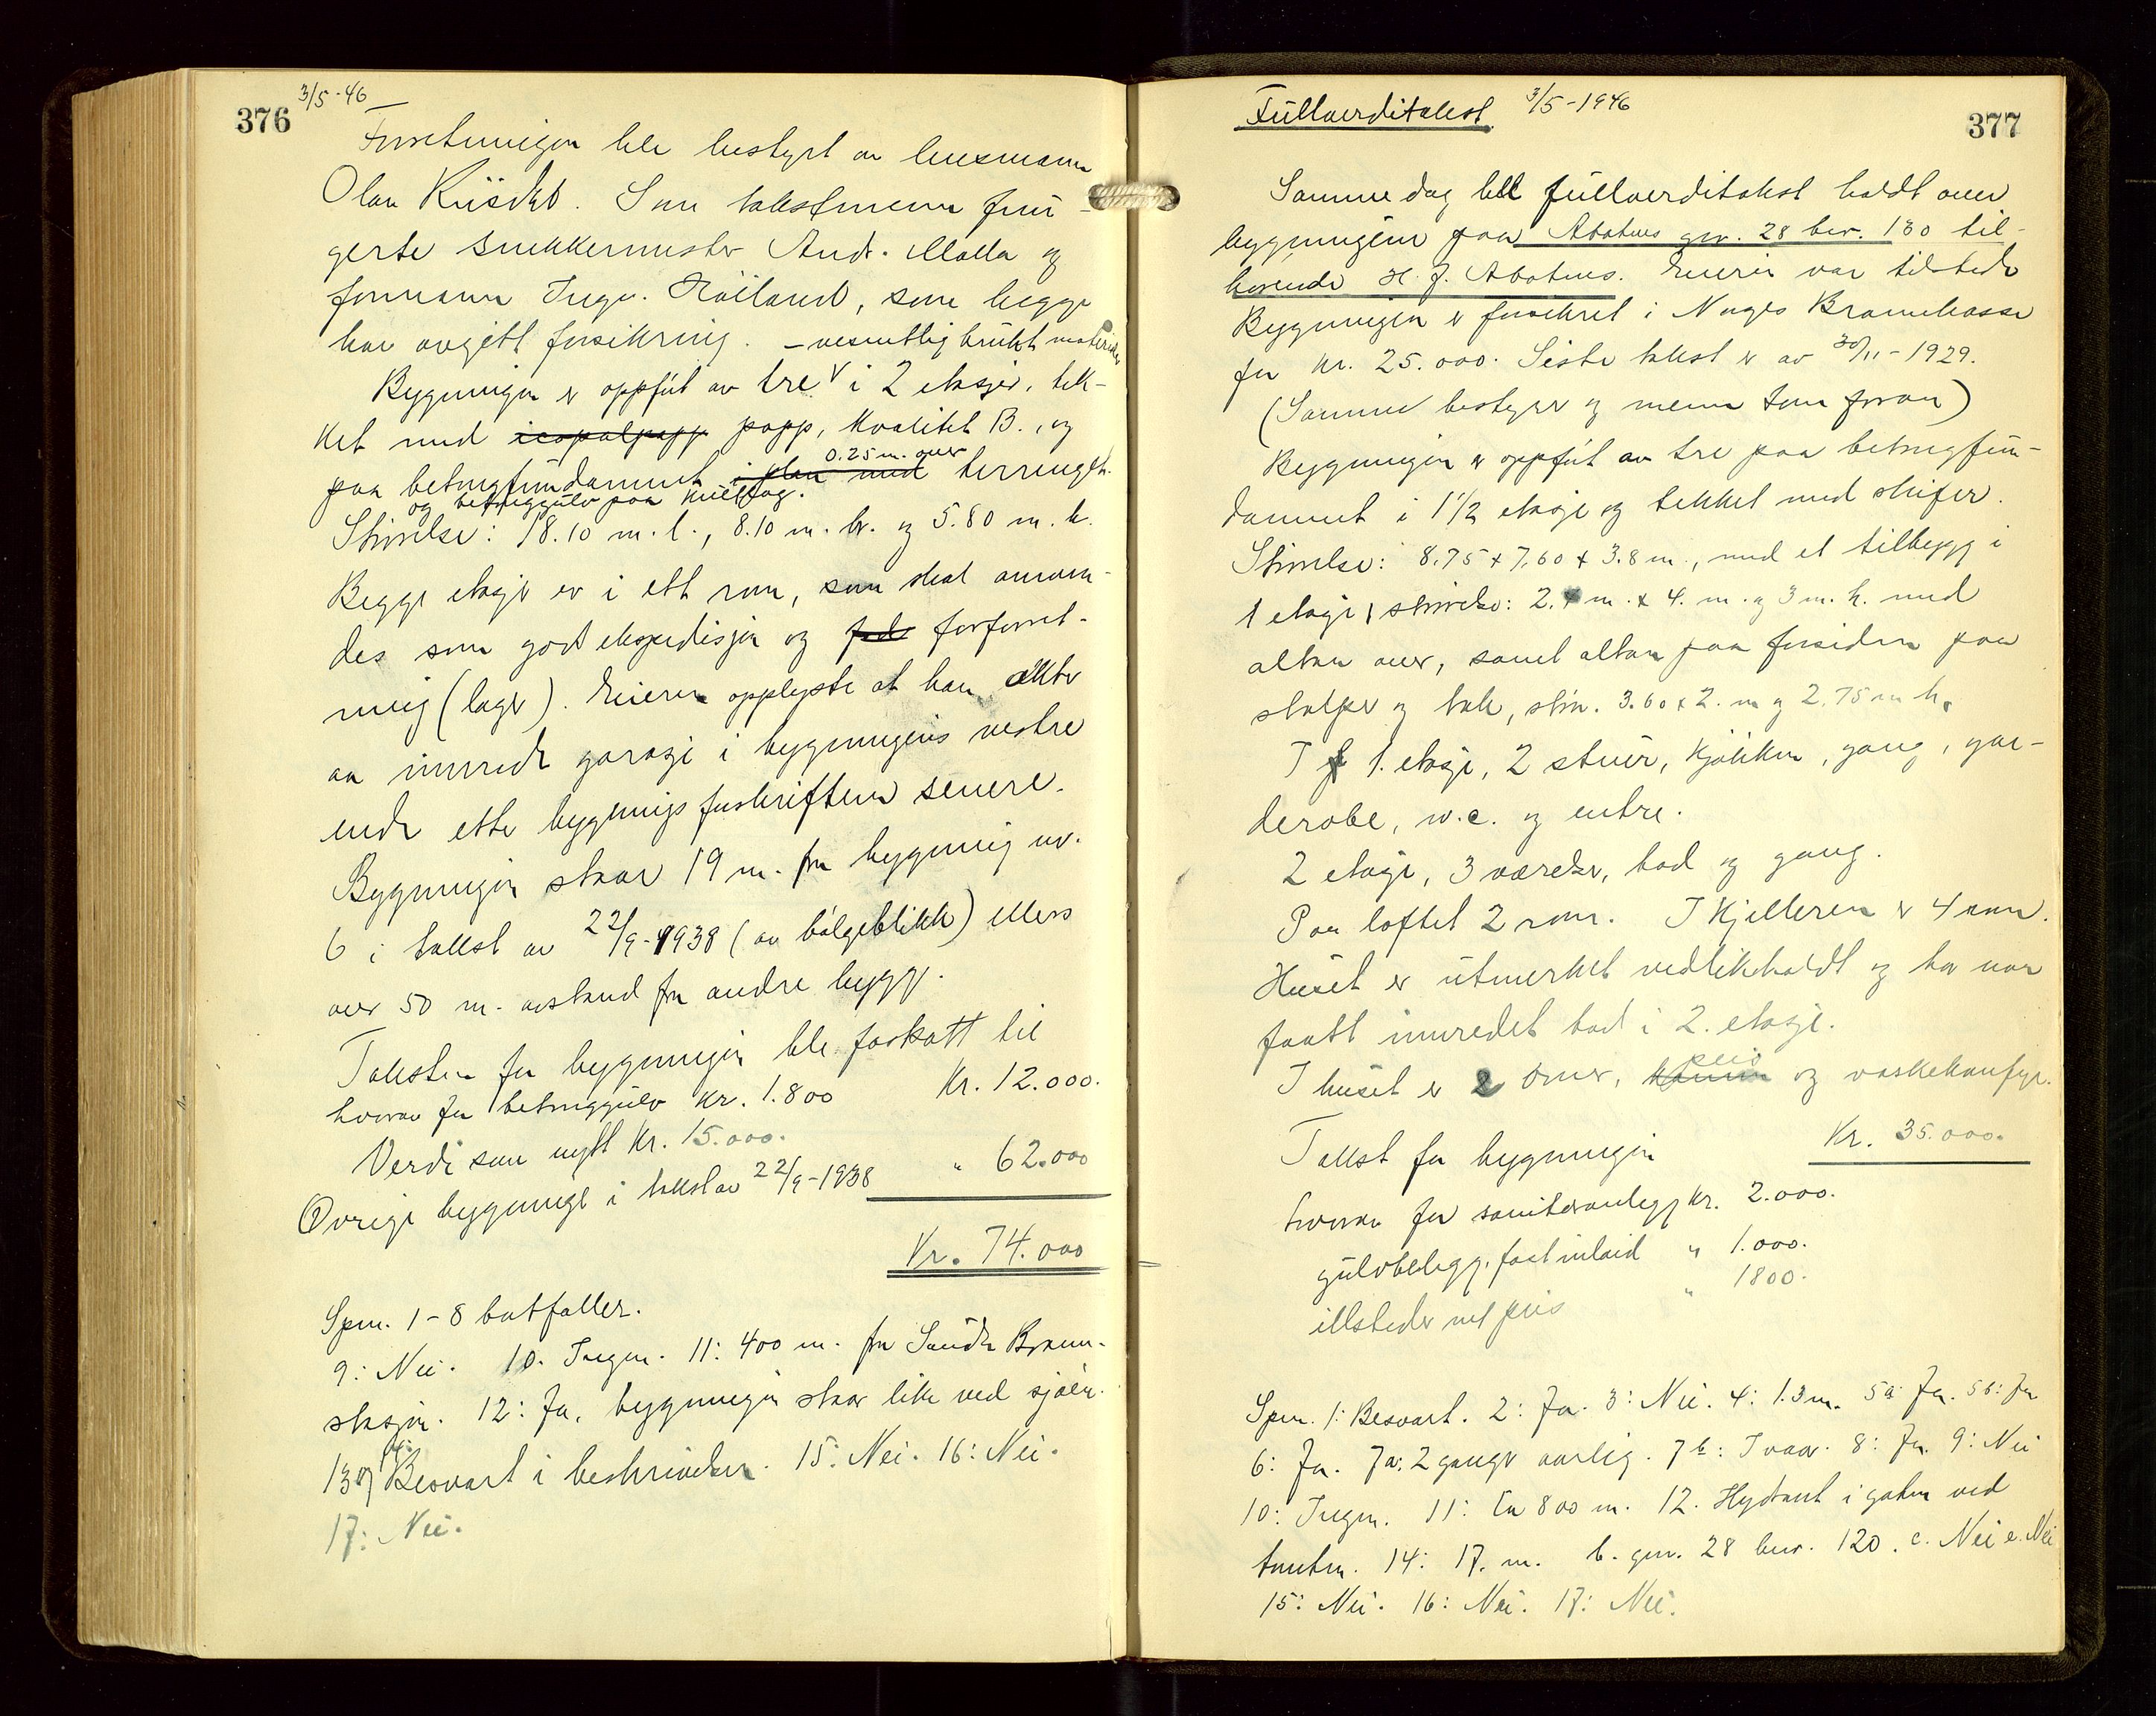 376
3/5-46
Forretningen ble bestyrt av lensmann
Olav Som takstmenn fun-
gerte snekkermester And. Malla og
formann Ingv. Håiland, som begge
har avgitt forsikring. – vesentlig brukt materialer
Bygningen er oppført av tre i 2 etasjer, tek-
ket med icopalpapp papp, kvalitet B., og
paa betongfundament i plan med 0.25 m. over terrenget.
og betonggulv paa
Størrelse: 18.10 m. l., 8.10 m. br. og 5.80 m. h.
Begge etasjer er i ett rom, som skal anven-
des som godsekspedisjon og forforret-
ning (lager). Eieren opplyste at han akter
aa innrede garasje i bygningens vestre
ende etter bygningsforskriftene senere.
Bygningen staar 19 m. fra bygning nr.
6 i takst av 22/9-1938 (av bølgeblikk) ellers
over 50 m. avstand fra andre bygg.
Taksten for bygningen ble fastsatt til
hvorav for betonggulv kr. 1.800 Kr. 12.000.
Verdi som nytt kr. 15.000.
Øvrige bygninger i takst av 22/9-1938 " 62.000
Kr. 74.000
Spm. 1-8 bortfaller.
9: Nei. 10. Ingen. 11: 400 m. fra Sande Brann-
stasjon. 12: Ja, bygningen staar like ved sjøen.
13 og 14: Besvart i beskrivelsen. 15: Nei. 16: Nei.
17: Nei.
Fullverditakst 3/5-1946
377
Samme dag ble fullverditakst holdt over
bygningen paa Abotnes gnr. 28 bnr. 130 til-
hørende H. J. Abotnes. Eieren var tilstede
Bygningen er forsikret i Norges Brannkasse
for kr. 25.000. Siste takst er av 30/11-1929.
(Samme bestyrer og menn som foran)
Bygningen er oppført av tre paa betongfun-
dament i 1 1/2 etasje og tekket med skifer.
Størrelse: 8.75 x 7.60 x 3.8 m., med et tilbygg i
1 etasje, størrelse: 2. m. x 4. m. og 3 m. h. med
altan over, samt altan paa forsiden paa
stolper og tak, stør. 3.60 x 2. m og 2.75 m h.
I 1. etasje, 2 stuer, kjøkken, gang, gar-
derobe, w.c. og entre.
2 etasje, 3 værelser, bad og gang.
Paa loftet 2 rom. I kjelleren er 4 rom.
Huset er utmerket vedlikeholdt og har nor
faatt innredet bad i 2. etasje.
I huset er 2 ovner, kamin peis og vaskekomfyr.
Takst for bygningen Kr. 35.000.
hvorav for saniteranlegg kr. 2.000.
gulvbelegg, fast inlaid " 1.000.
ildsteder med peis " 1800.
Spm. 1: Besvart. 2: Ja. 3: Nei. 4: 1.3 m. 5a: Ja. 5b: Ja
6: Ja. 7a: 2 ganger aarlig. 7b: I vaar. 8: Ja. 9: Nei
10: Ingen. 11: Ca 800 m. 12. Hydrant i gaten ved
tomten. 14: 17. m. b. gnr. 28 bnr. 120. c. Nei e. Nei
15: Nei. 16: Nei. 17: Nei.